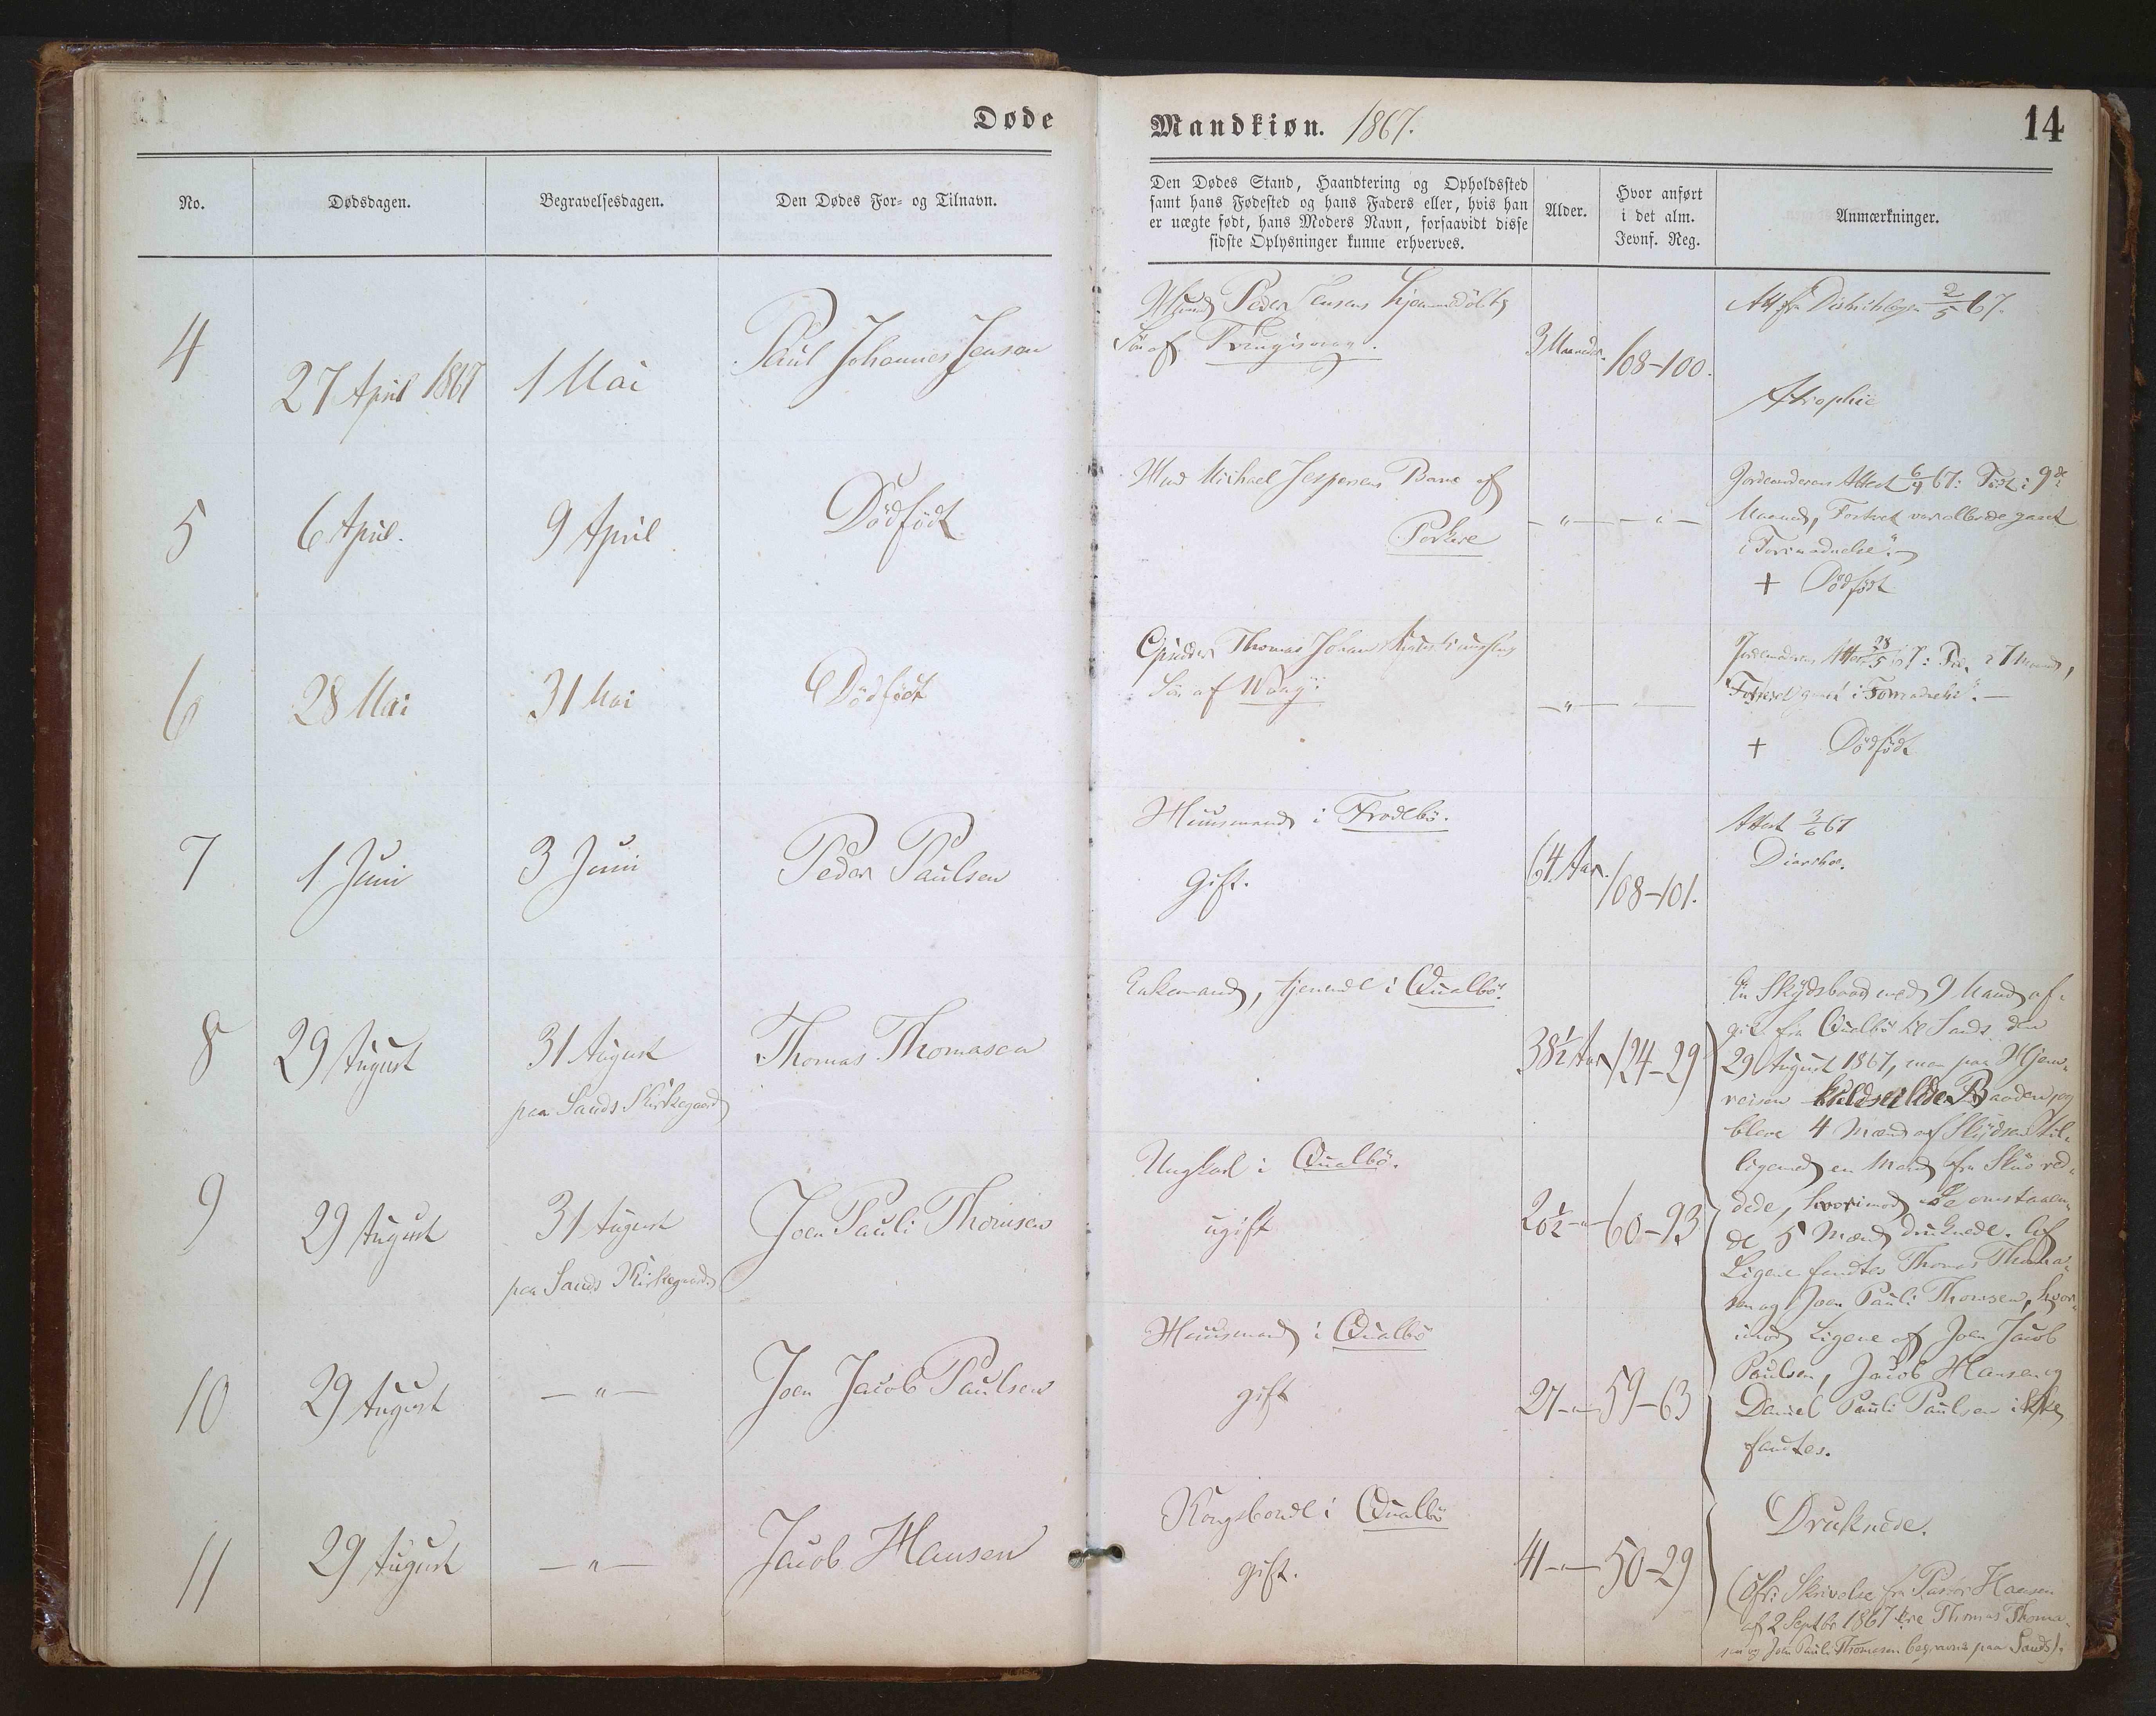 Døde
Mandkiøn. 1867.
14
No.
Dødsdagen.
Begravelsesdagen.
Den Dødes For- og Tilnavn.
Den Dødes Stand, Haandtering og Opholdssted
samt hans Fødested og hans Faders eller, hvis han
er uægte født, hans Moders Navn, forsaavidt disse
sidste Oplysninger kunne erhverves.
Alder.
Hvor anført
i det alm.
Jevnf. Reg.
Anmærkninger.
4
27 April 1867
1 Mai
Paul Johannes Jensen
Peder Jensens
Søn af
3 Maander.
108-100.
Att fra 2/5 67.
Atrophie
5
6 April.
9 April
Dödfödt
Michael Jespersens Barn af
Porkere
-"-
-"-
Jordemoderens Attest 6/4 67: Født i 9de
Maaned, Fostret var allerede gaaet
i Forraadnelse".
+ Dödfödt
6
28 Mai
31 Mai
Dödfödt
Thomas Johan
Søn af Waag.
-"-
-"-
Jordemoderens Attest 28/5 67: 7 Maaned,
Fostret gaaet i Forraadnelse".
+ Dödfödt
7
1 Juni
3 Juni
Peder Paulsen
Huusmand i Frodebö.
gift.
64 Aar.
108-101.
Attest 3/6 67
Diarrhoe.
8
29 August
31 August
paa Sands Kirkegaard
Thomas Thomasen
Enkemand, tjenende i Qualbö.
38½ Aar
124-29
En Skydsbaad med 9 Mand af-
gik fra Qualbö til Sand den
29 August 1867, men paa Hjem-
reisen kuldseilede Baaden og
bleve 4 Mænd af Skydsen til-
ligemed en Mand fra Skuö red-
dede, hvorimod de omstaaen-
de 5 Mænd druknede. Af
Ligene fandtes Thomas Thoma-
sen og Joen Pauli Thomsen, hvor-
imod Ligene af Joen Jacob
Paulsen, Jacob Hansen og
Daniel Pauli Paulsen ikke
fandtes.
9
29 August
31 August
paa Sands Kirkegaard
Joen Pauli Thomsen
Ungkarl i Qualbö.
ugift
20½-"-
60-93
10
29 August
-"-
Joen Jacob Paulsen
Huusmand i Qualbö
gift
27-"-
59-63
11
29 August
-"-
Jacob Hansen
Kongsbonde i Qualbö
gift.
41-"-
50-29
Druknede.
Skrivelse fra Pastor Hansen
af 2 Septbr 1867 ere Thomas Thoma-
sen og Joen Pauli Thomasen begravne paa Sand).